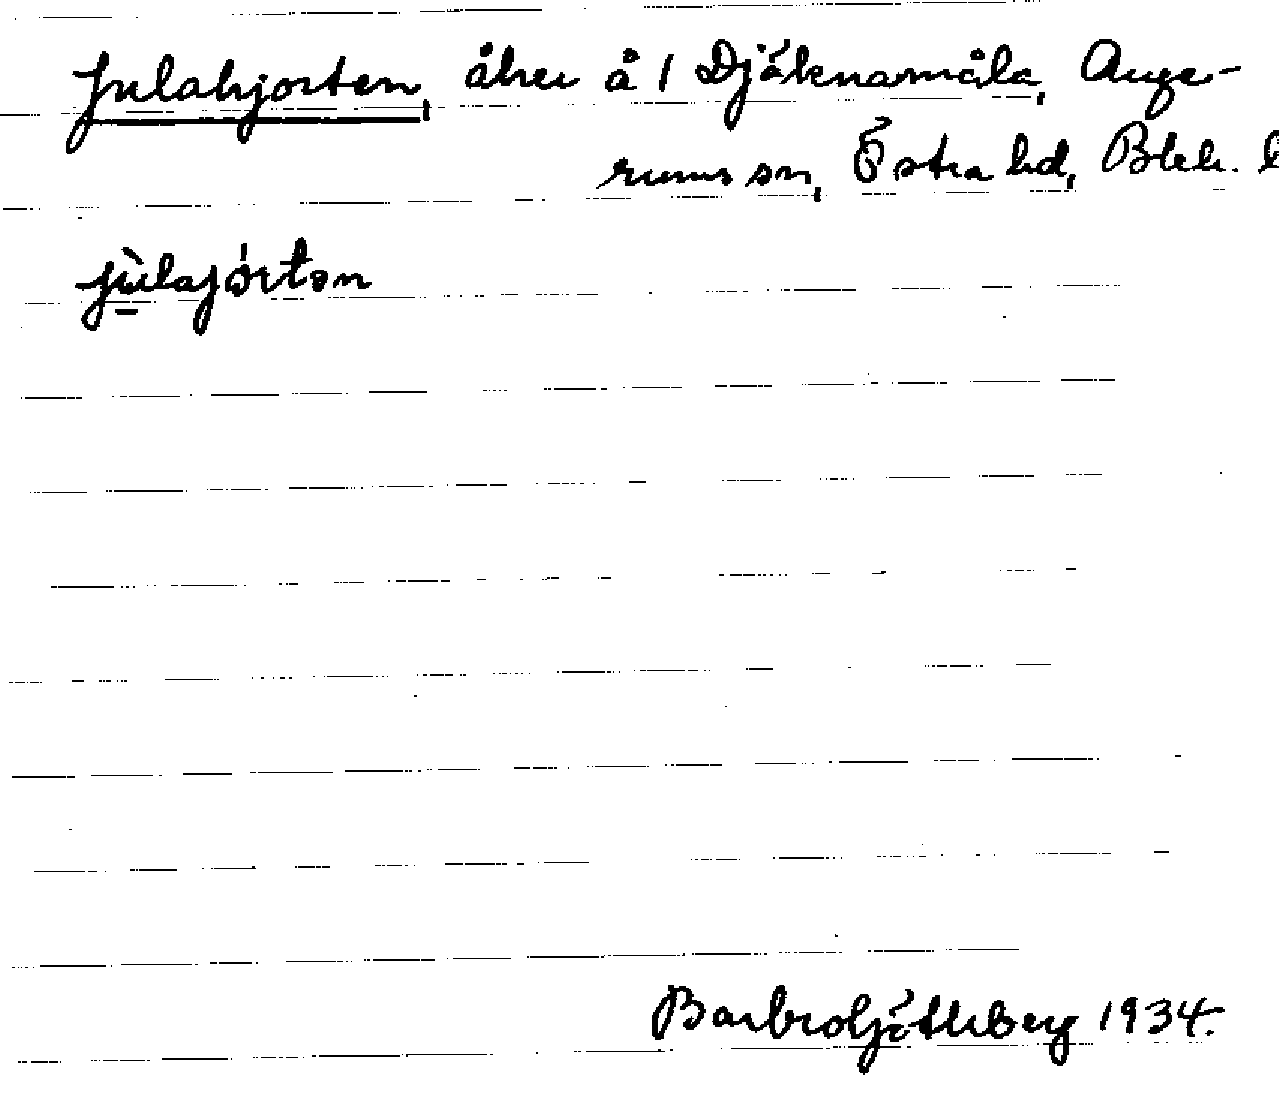 Julahjorten, åker å 1 Djäknamåla, Auge-
rums sn, Östra hd, Blek. l
jùlajórtən
Barbro 1934.